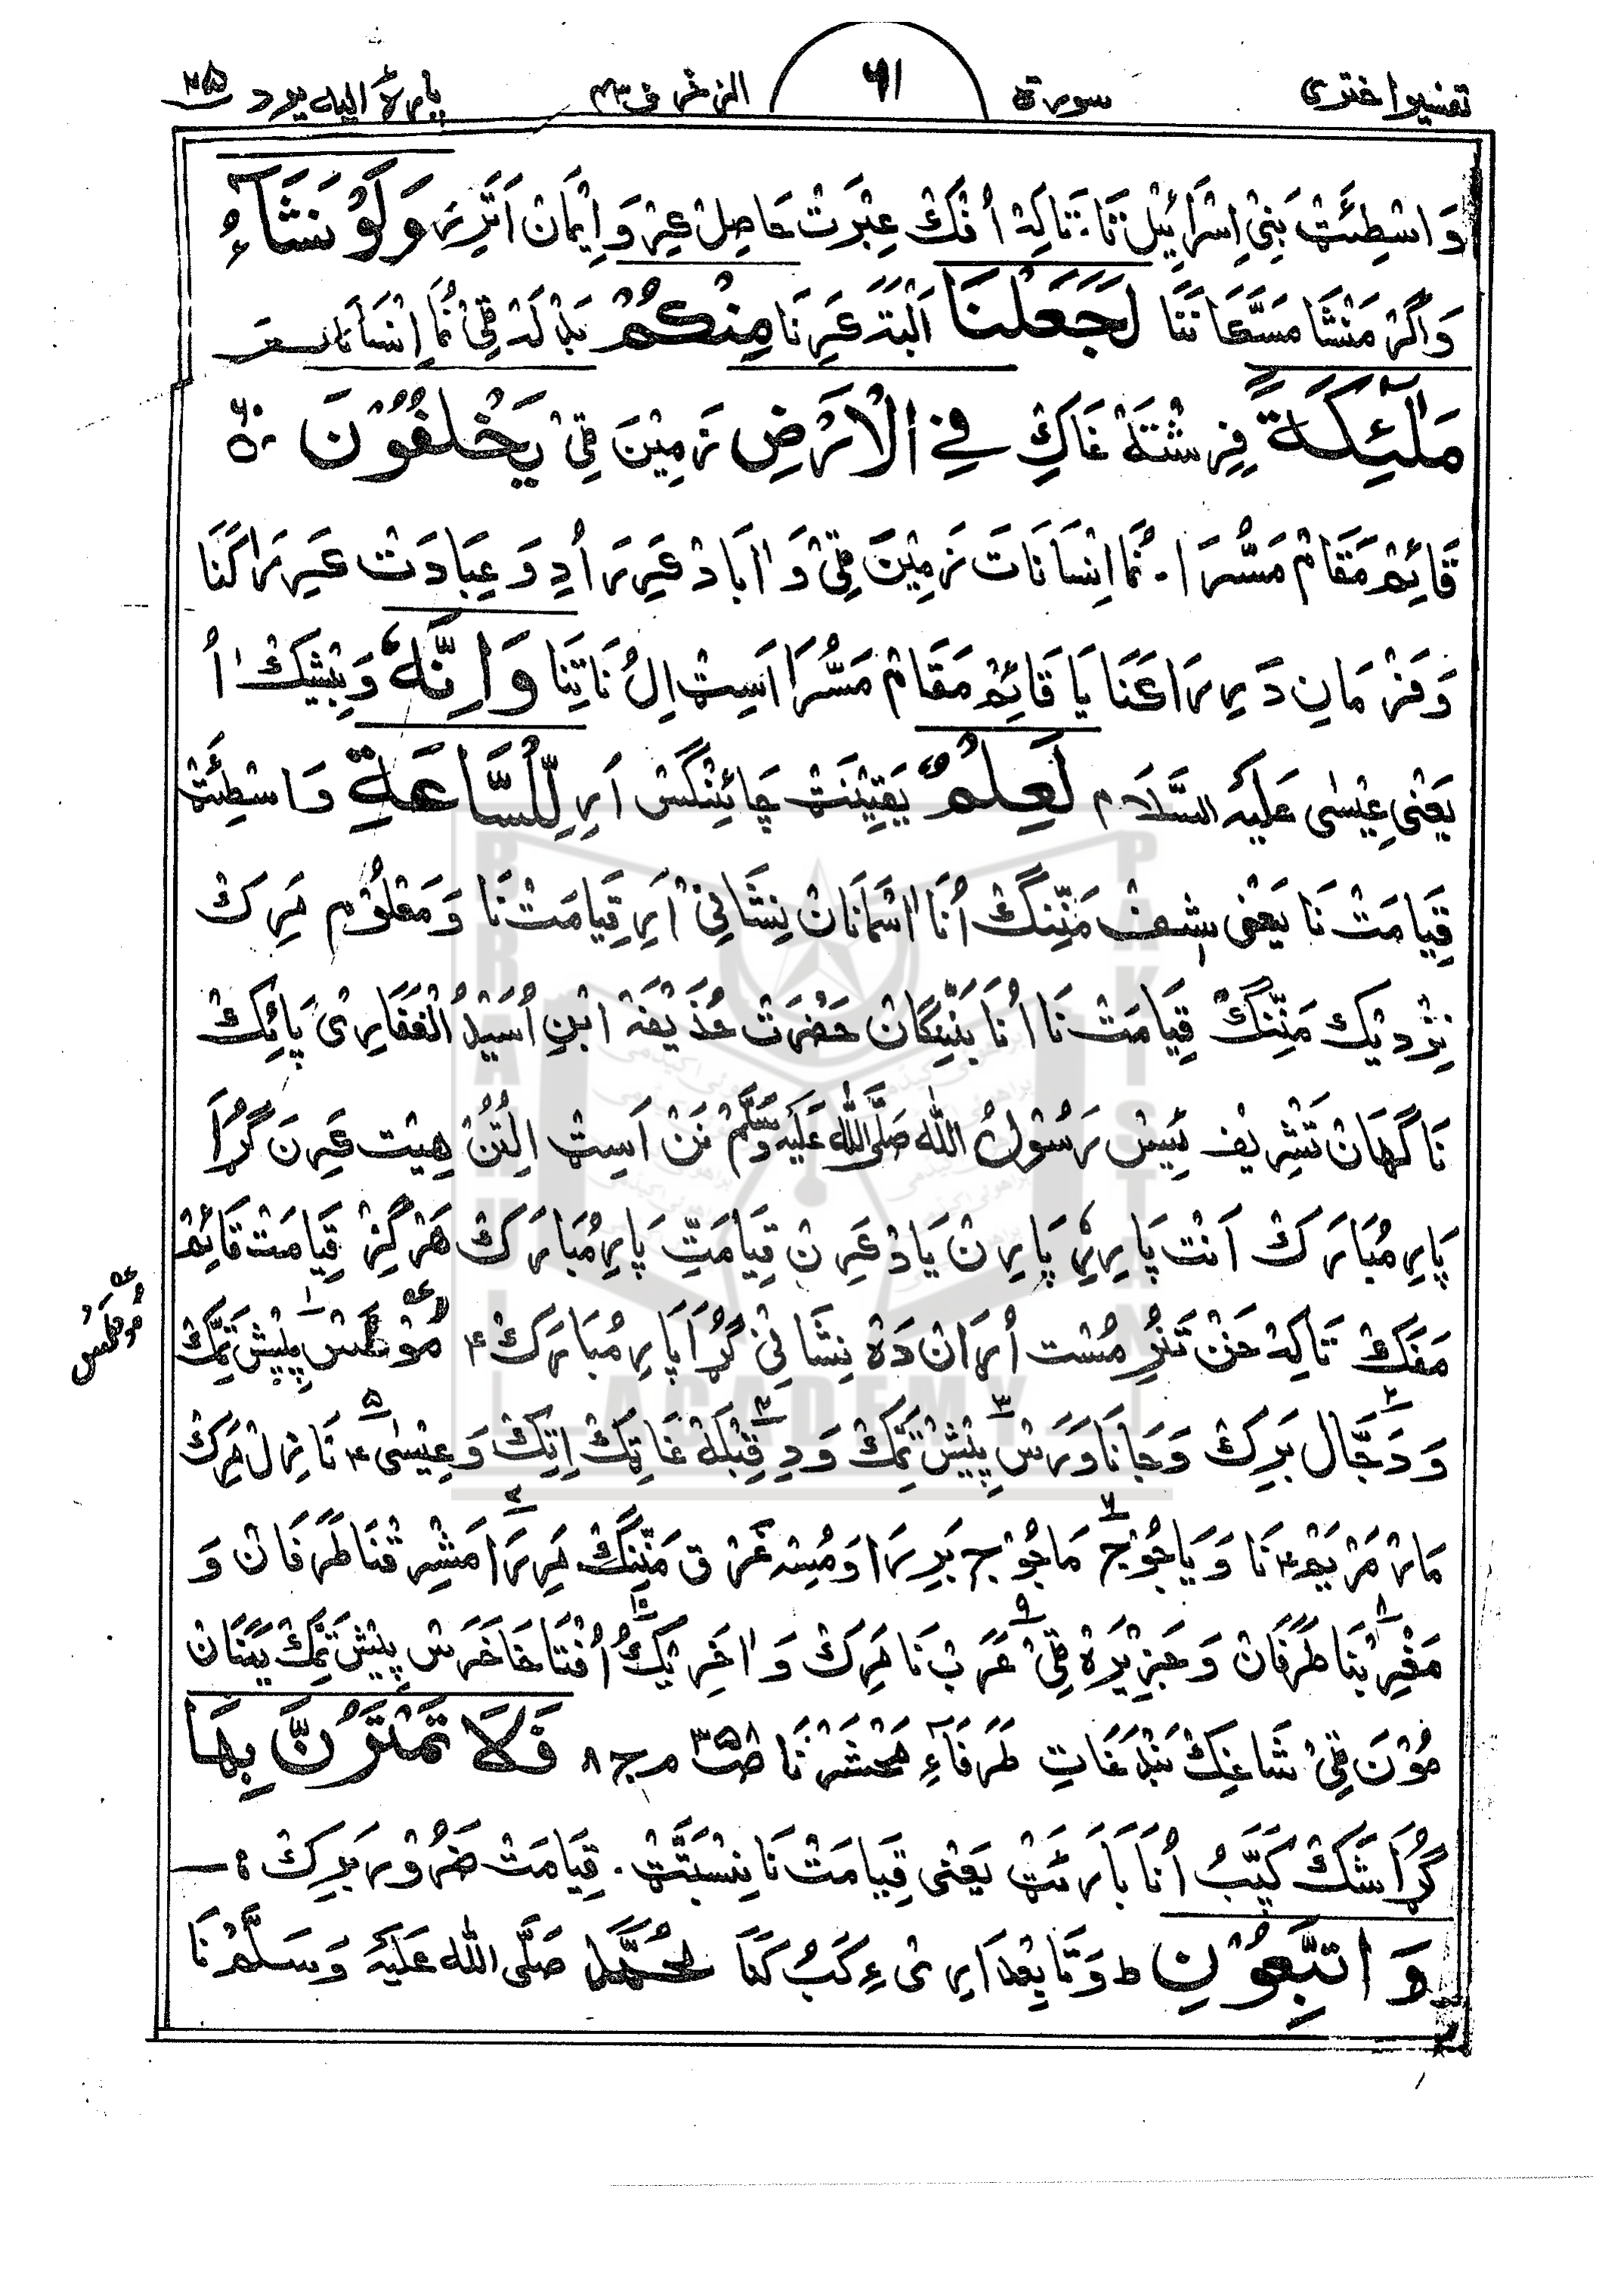 تفسیر اختری سورة ٦١ الزخرف ٤٣ پارۀ الیه یرد ٢٥
وَاسْطِئَتْ بَنِیْ اِسْرَائِیْل نَا تَاکِہْ اُفْکْ عِبْرَتْ حَاصِلْ عِرْ وَ اِیْمَانْ اَتِّرِ وَلَوْ نَشَآءُ
وَاگَرْ مَنْشَا مَسَّکَا نَنَا لَجَعَلْنَا اَلْبَتَہ عَرِنَا مِنْکُمْ بَدْلَہْ قِیْ نُمَا اِنْسَانَا
مَلٰٓئِکَةً فِرِشْتَهْ غَاکِ فِی الْاَرْضِ زَمِیْنَ قِیْ یَخْلُفُوْنَ ٦٠
قَائِمْ مَقَامْ مَسُّرَا۔ نُمَا اِنْسَانَاتَ زَمِیْنَ قِیْ وَاٰبَادْ عَرِرَ اُدِ وَعِبَادَتْ عَرِرَا کَنَا
وَفَرْمَانِ دَرِرَاعَنَا یَا قَائِمْ مَقَامْ مَسُّرَا اَسِتْ اِلُ نَاتِنَا وَاِنَّهٗ وَبِیْشَکْ اُ
یَعْنِی عِیْسٰی عَلَیْہِ السَّلَام لَعِلْمٌ یَقِیْنَتْ چَائِنْگَسْ اَرِ لِّلسَّاعَةِ وَاسْطِئَتْ
قِیَامَتْ نَا یَعْنِی شِفْ مَنِّنِگْ اُنَا اسْمَانَانْ نِشَانِیْ اَرِ قِیَامَتْ نَا وَمَعْلُوْم مَرِکْ
نِزْدِیْکْ مَنِّنِگْ قِیَامَتْ نَا اُنَا بَنِّنِگَانْ حَضْرَتْ حُذَیْفَہْ ابْنِ اُسَیْدُ الْغَفَارِیْ پَائِکْ
نَاگَہَانْ تَشْرِیْف بَیْسْ رَسُوْلُ اللّٰہ صَلَّی اللّٰہُ عَلَیْہِ وَسَلَّمْ نَنْ اَسِتْ اِلْتُنْ ہِیْت عَرِنَ گُڑَا
پَارِ مُبَارَکْ اَنْتْ پَارِرِے پَارِنْ یَادْ عَرِنْ قِیَامَتِ پَارِ مُبَارَکْ ہَرْگِزْ قِیَامَتْ قَائِمْ
مَفَکْ تَاکِہْ خَنْتَنُرِ مُسْت اُرَانْ دَہْ نِشَانِیْ گُڑَا پَارِ مُبَارَکْ ۴ ١ مُوْطَسْ پِیْش تَمِّکْ
وَ ٢ دَجَّال بَرِکْ وَ ٣ جَانَاوَرَسْ پِیْشْ تَمِّکْ وَدِ ٤ قِبْلَہْ غَاتِکْ اِتِکْ وَ ٥ عِیْسٰی ۴ نَازِل مَرِکْ
مَارْ مَرْیَمْ نَا وَ یَاجُوْج مَاجُوْج بَرِرَا وَ مُسِہ غَرْق مَنِّنِگْ مَرِرَا مَشْرِقْنَا طَرَفَانْ وَ
٨ مَغْرِبْنَا طَرَفَانْ وَ ٩ جَزِیْرَہْ قِیْ عَرَبْ نَا مَرِکْ وَ ١٠ اٰخِرِیْکُ اُفْتَا خَاخَرَسْ پِیْشْ تَمِّکْ یَمَنَانْ
مُوْنَ قِیْ شَاغِکْ بَنْدَغَاتِ طَرَفَآءِ مَحْشَرْنَا صٔ ٣٥٨ م ج ٨ فَلَا تَمْتَرُنَّ بِهَا
گُڑَا شَکْ کَبَّبُ اُنَا بَارَئَتْ یَعْنِی قِیَامَتْ نَا نِسْبَتَّتْ۔ قِیَامَتْ ضَرُوْر بَرِکْ ۵
وَاتَّبِعُوْنِ ط وَتَابِعْدَارِیْ ءِ کَبُ کَنَا مُحَمَّد صَلَّی اللّٰہُ عَلَیْہِ وَسَلَّمْ نَا